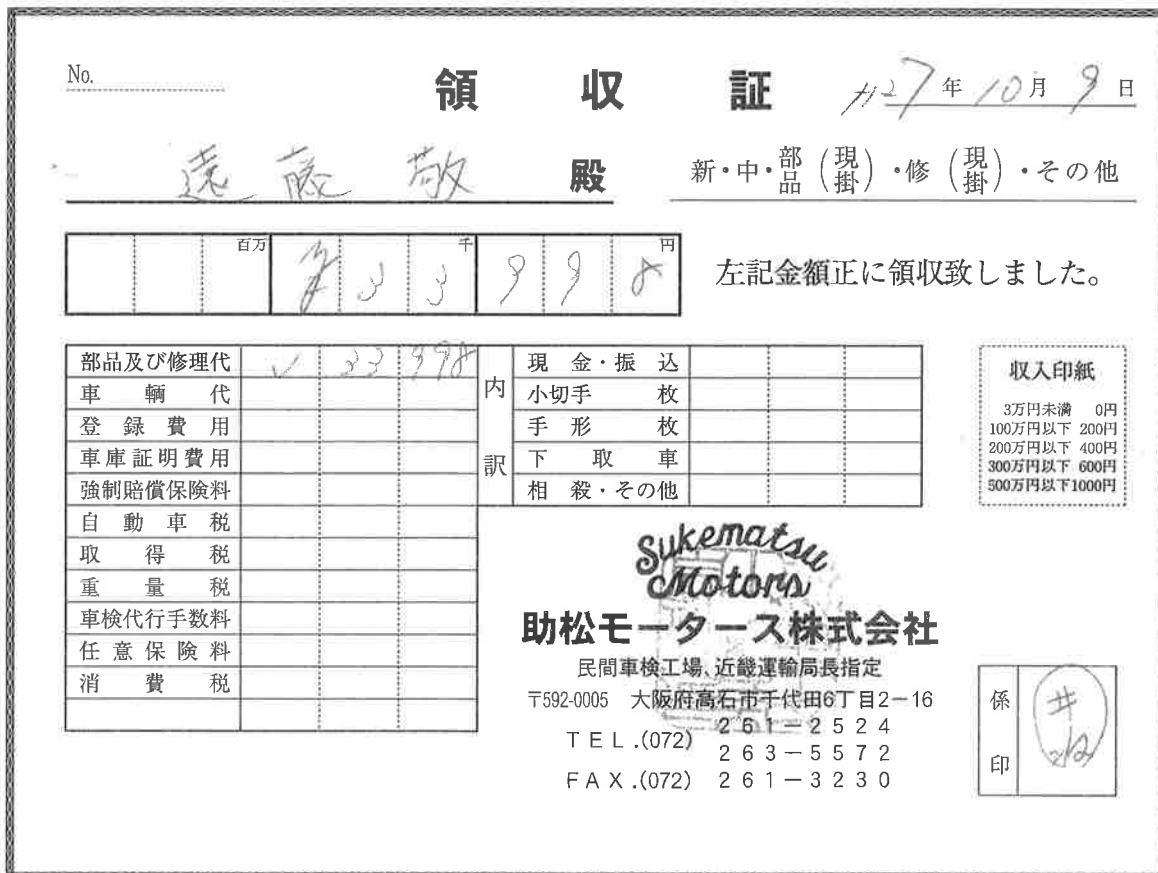 No.
領収証
H27年10月9日
遠藤敬 殿
新・中・部品(現掛)・修(現掛)・その他
百万 千 円
¥33998
左記金額正に領収致しました。
部品及び修理代 ✓ 33 998
車輌代
登録費用
車庫証明費用
強制賠償保険料
自動車税
取得税
重量税
車検代行手数料
任意保険料
消費税
内訳
現金・振込
小切手 枚
手形 枚
下取車
相殺・その他
収入印紙
3万円未満 0円
100万円以下 200円
200万円以下 400円
300万円以下 600円
500万円以下1000円
Sukematsu
Motors
助松モータース株式会社
民間車検工場、近畿運輸局長指定
〒592-0005 大阪府高石市千代田6丁目2-16
TEL.(072) 261-2524
263-5572
FAX.(072) 261-3230
係印
井